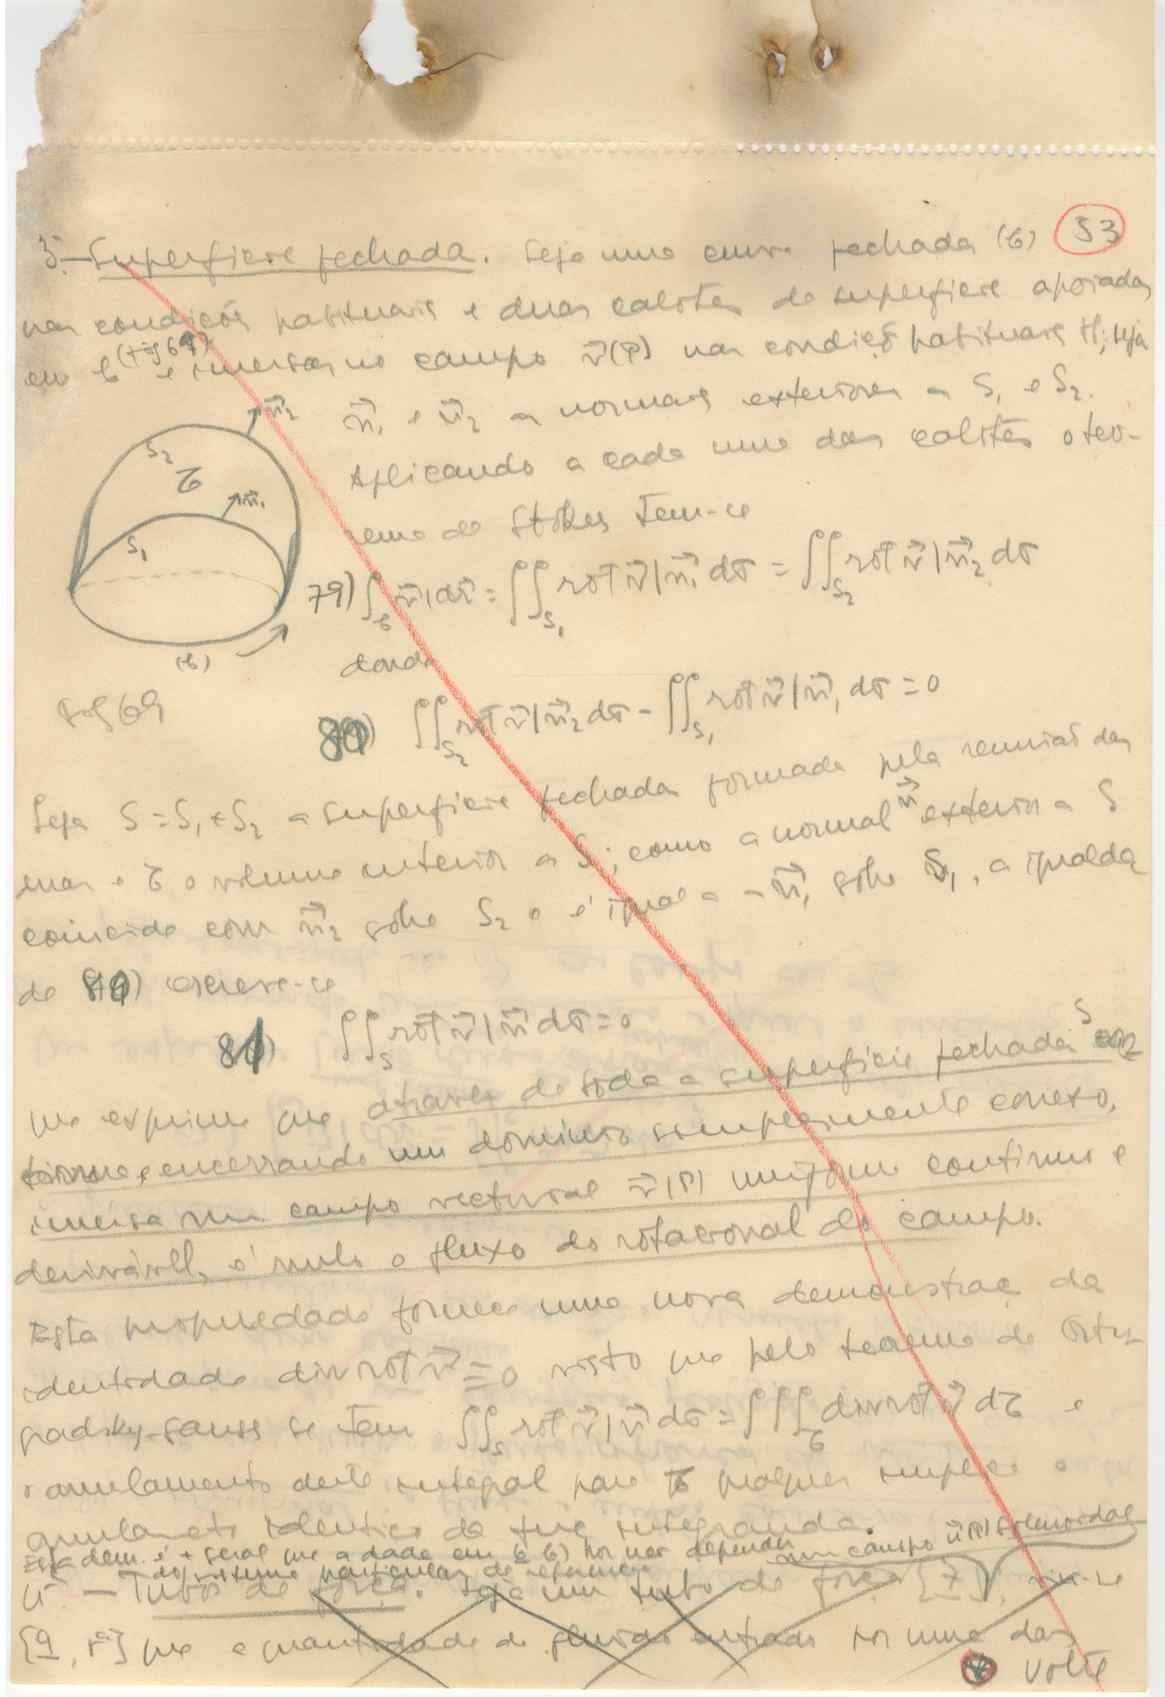 53
3.— Superficie fechada. Seja uma curva fechada (C)
nas condições habituais e duas calotes de superficie apoiadas
em C (fig 69) e imersas no campo v⃗(P) nas condições habituais H; seja
n⃗₁ e n⃗₂ as normais exteriores a S₁ e S₂.
Aplicando a cada uma das calotes o teo-
rema de Stokes tem-se
S₂ τ n⃗₂
S₁ n⃗₁
(C)
fig 69
79) ∫_C v⃗|dτ⃗ = ∬_S₁ rot v⃗|n⃗₁ dσ = ∬_S₂ rot v⃗|n⃗₂ dσ
donde
80) ∬_S₂ rot v⃗|n⃗₂ dσ − ∬_S₁ rot v⃗|n⃗₁ dσ = 0
Seja S = S₁ + S₂ a superficie fechada formada pela reunião das
duas e τ o volume interior a S; como a normal n⃗ exterior a S
coincide com n⃗₂ sobre S₂ e é igual a −n⃗₁ sobre S₁, a igualda
de 80) escreve-se
81) ∬_S rot v⃗|n⃗ dσ = 0
que exprime que através de toda a superficie fechada S
encerrando um dominio simplesmente conexo,
imersa num campo vectorial v⃗(P) uniforme continuo e
derivável, é nulo o fluxo do rotacional do campo.
Esta propriedade fornece uma nova demonstração da
identidade div rot v⃗ ≡ 0 visto que pelo teorema de Ostro-
gradsky-Gauss se tem ∬_S rot v⃗|n⃗ dσ = ∭_τ div rot v⃗ dτ e
o anulamento deste integral para τ qualquer implica o
anulamento identico da funç integranda.
Esta dem. é + geral que a dada em 6 6) por não depender
do sistema particular de referencia
num campo u⃗(P) solenoidal
4 — Tubos de força. Seja um tubo de força [7],
[9, 1º] que a quantidade de fluido entrado por uma das
volte